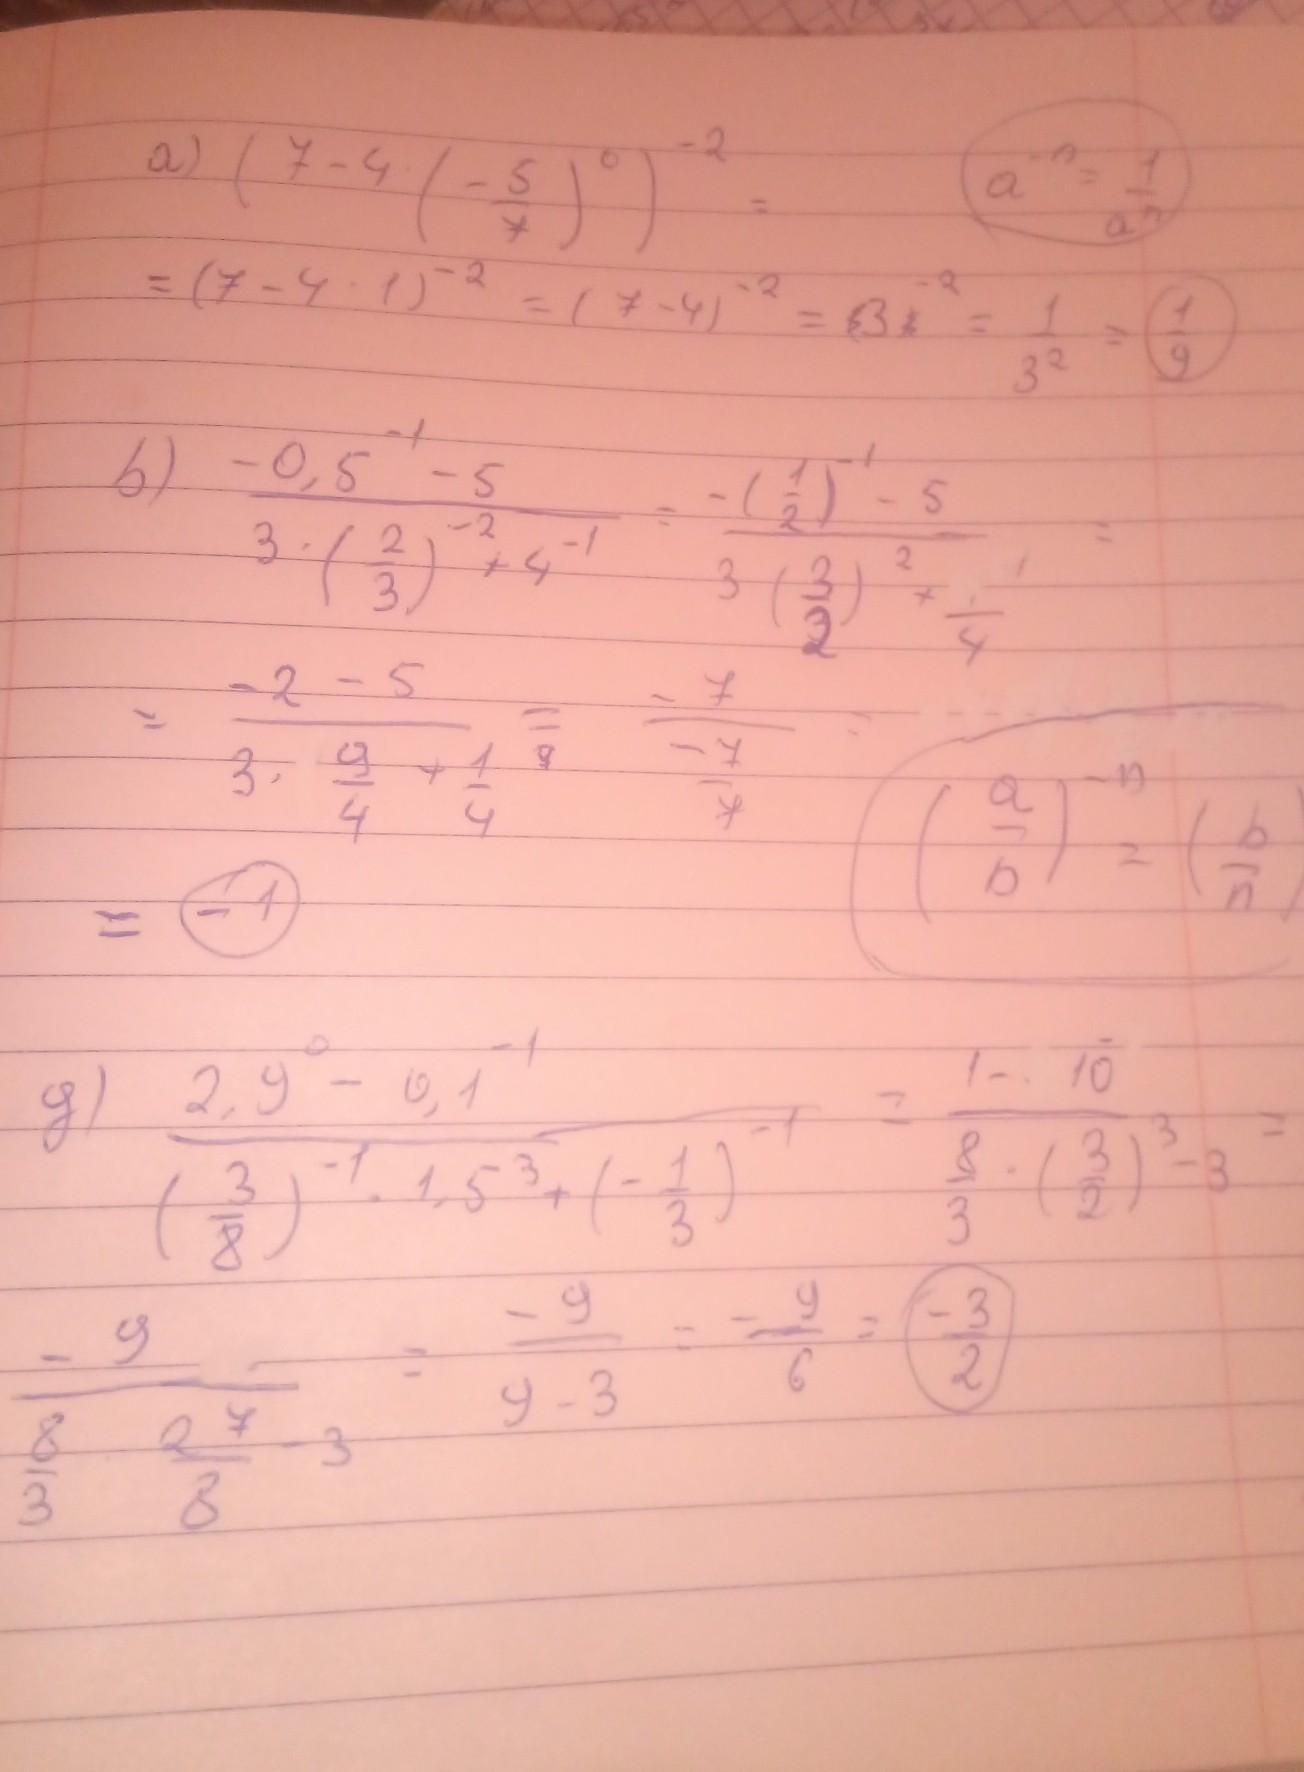 a) (7 - 4 · (-5/7)^0)^-2 =
a^-n = 1/a^n
= (7 - 4 · 1)^-2 = (7 - 4)^-2 = 3^-2 = 1/3^2 = 1/9
b) (-0,5^-1 - 5)/(3 · (2/3)^-2 + 4^-1) = (-(1/2)^-1 - 5)/(3 (3/2)^2 + 1/4) =
= (-2 - 5)/(3 · 9/4 + 1/4) = -7/ =
(a/b)^-n = (b/n)
= -1
g) (2,9^0 - 0,1^-1)/((3/8)^-1 · 1,5^3 + (-1/3)^-1) = (1 - 10)/(8/3 · (3/2)^3 - 3) =
-9/(8/3 27/8 - 3) = -9/(9 - 3) = -9/6 = -3/2